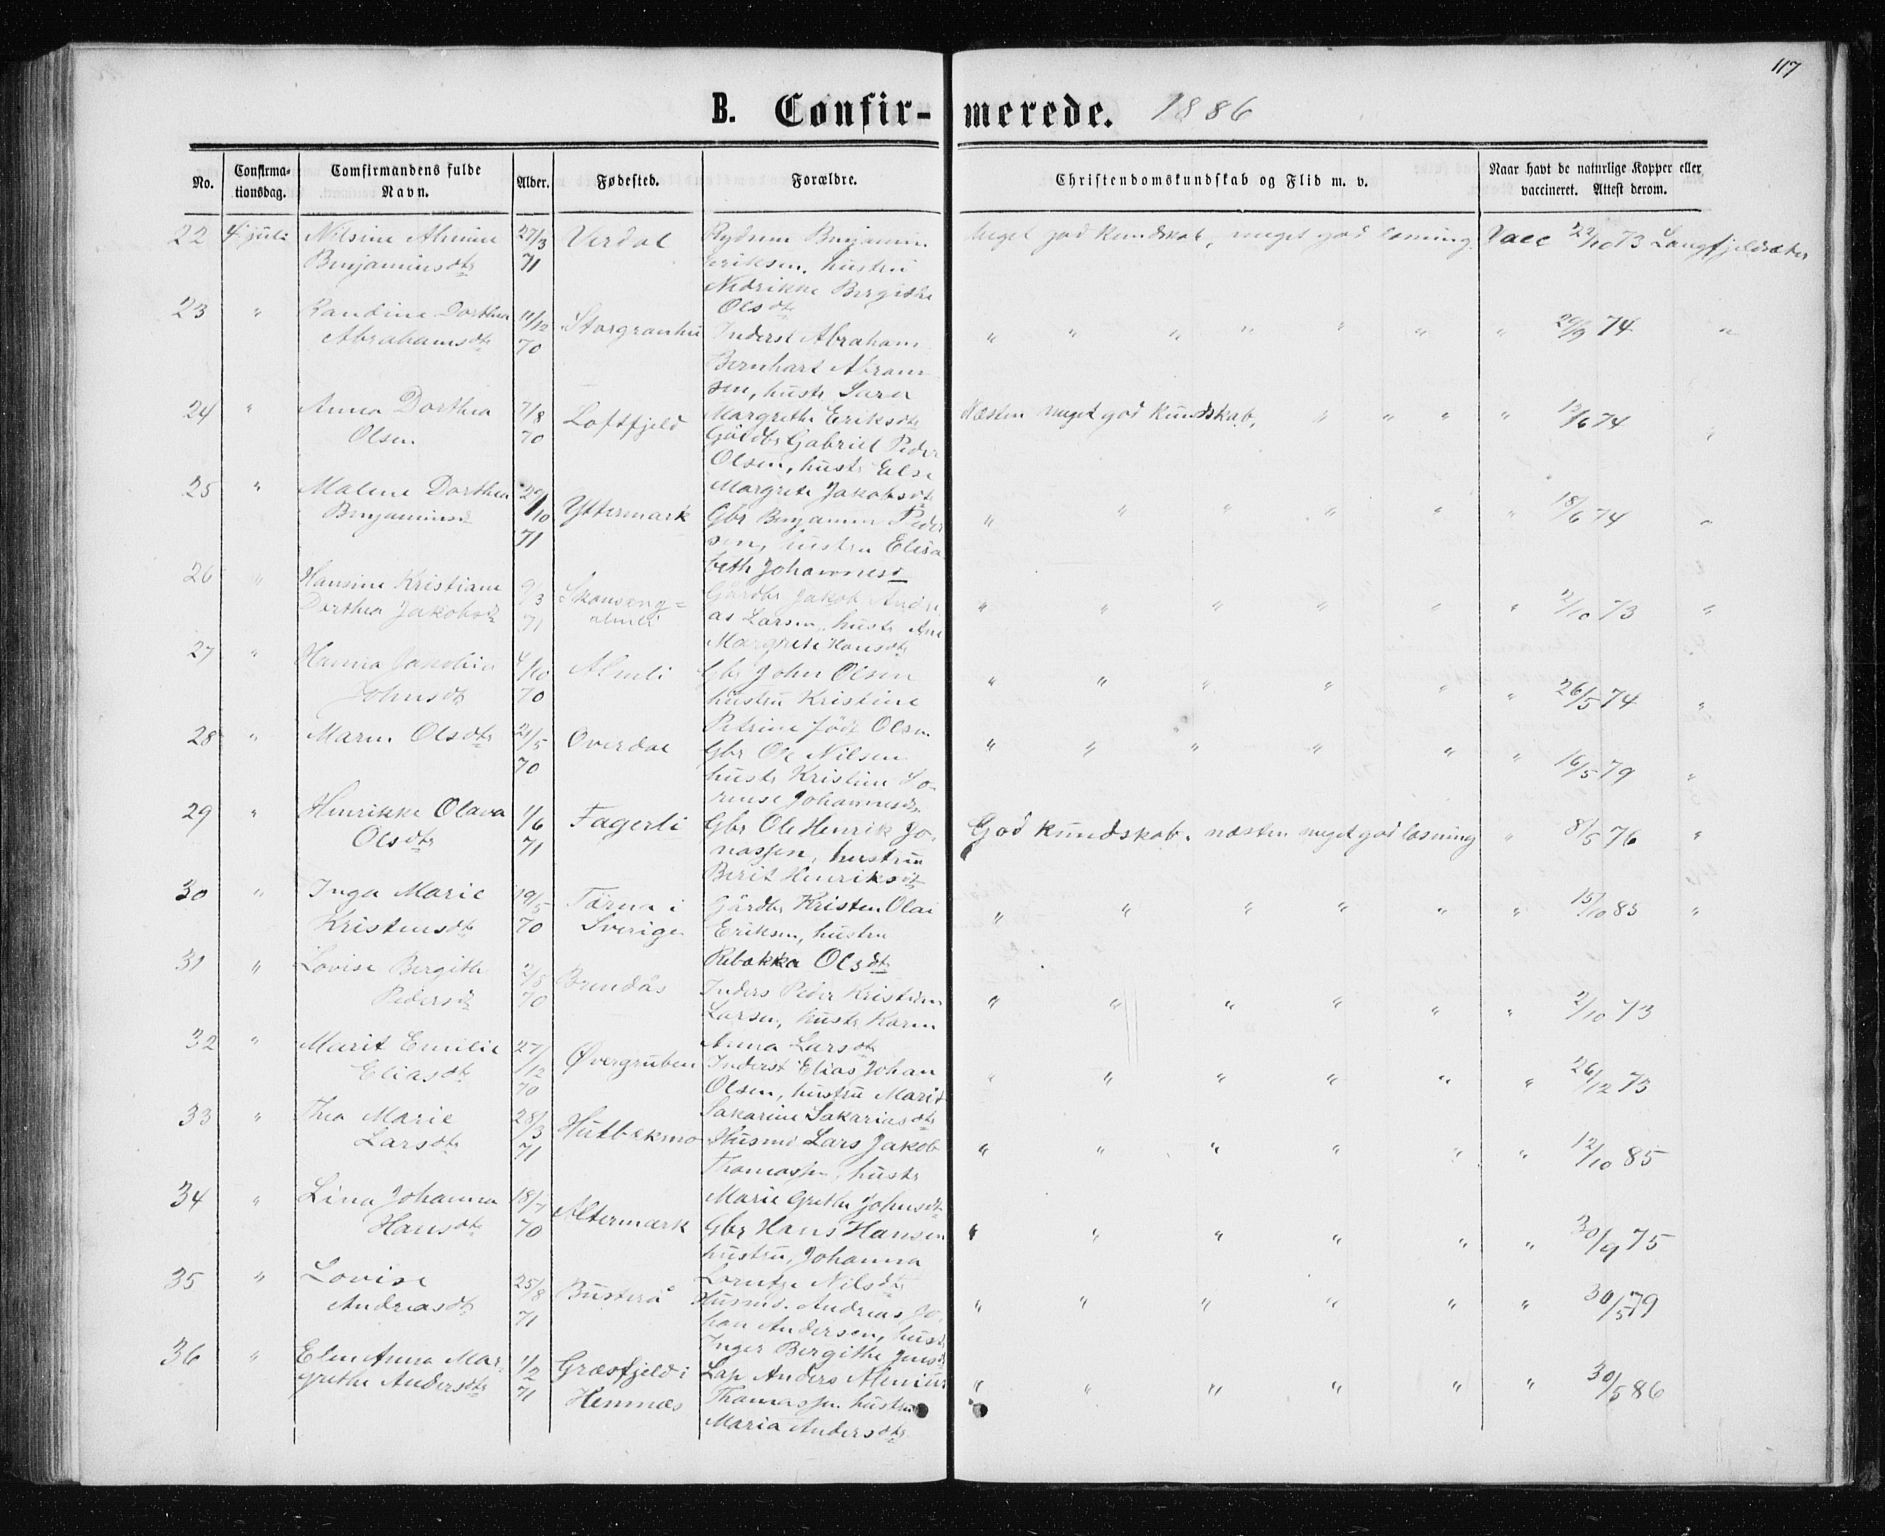 117
B. Confirmerede. 1886
No. Confirmationsdag. Comfirmandens fulde Navn. Alder. Fødested. Forældre. Christendomskundskab og Flid m. v. Naar havt de naturlige Kopper eller vaccineret. Attest derom.
22 4 juli Nilsine Benjaminsdtr 27/3 71 Virdal Benjamin Eriksen, hustru Bergithe Olsdtr Meget god kundskab, meget god læsning Vacc 73
23 " Randine Dorthea Abrahamsdtr 11/12 70 Inderst Abraham Bernhart Abramsen, hustr Sara Margrethe Eriksdtr " " " " " " " 20/9 74 "
24 " Anna Dorthea Olsen 7/8 70 Loftfjeld Gabriel Peder Olsen, hustr Else Margrete Jakobsdtr Næsten meget god kundskab, " " " " /6 74 "
25 " Malene Dorthea Benjaminsd 29/10 71 Yttermark Gbr Benjamin Pedersen, hustru Elisabeth Johannesd " " " " " " 18/6 74 "
26 " Hansine Kristiane Dorthea Jakobsd 9/3 71 Gårdbr Jakob Andreas Larsen, hustr Ane Margrete Hansdtr " " " " " " 2/10 73 "
27 " Hanna Jakobia Johnsdtr 4/10 70 Almli Gbr John Olsen hustru Kristine Petrine født Olsen " " " " " " 26/5 74 "
28 " Maren Olsdtr 21/5 70 Overdal Gbr Ole Nilsen hustr Kristine Johannesd " " " " " " 16/5 79 "
29 " Henrikke Olava Olsdtr 1/6 71 Fagerli Gbr Ole Henrik Jonassen, hustru Berit Henriksdtr God kundskab. næsten meget god læsning " 8/5 76 "
30 " Inga Marie Kristensdtr 19/5 70 Tärna i Sverige Gårdbr Kristen Olai Eriksen, hustru Rebekka Olsdtr " " " " " " 15/10 85 "
31 " Lovise Bergithe Pedersd 2/8 70 Brendås Inders Peder Kristian Larsen, hustr Karen Anna Larsdtr " " " " " " 2/10 73
32 " Marit Emilie Eliasdtr 27/12 70 Øvergruben Inderst Elias Johan Olsen, hustru Marit Sakarine Sakariasdtr " " " " " " 26/12 73
33 " Thea Marie Larsdtr 28/3 71 Hutbækmo Husmd Lars Jakob Thomassen, hustr Marie Grethe Johnsdtr " " " " " " 12/10 85
34 " Lina Johanna Hansdtr 18/7 70 Altermark Gbr Hans Hansen hustru, Johanna Lorntze Nilsdtr " " " " " " 30/9 75
35 " Lovise Andreasdtr 25/8 71 Busterå Husmd. Andreas Johan Andersen, hustr Inger Bergithe Jensd " " " " " " 30/5 79
36 " Elen Anna Margrethe Andersdtr 1/2 71 Græsfjeld i Hemnæs Lap Anders Thomassen hustru Maria Andersdtr " " " " " " 30/5 86